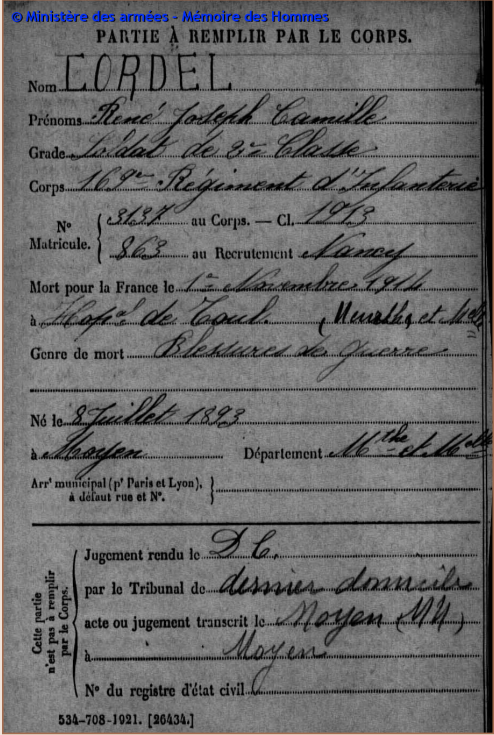 © Ministère des armées - Mémoire des Hommes
PARTIE À REMPLIR PAR LE CORPS.
Nom CORDEL
Prénoms René Joseph Camille
Grade Soldat de 2me Classe
Corps 169me Régiment d'Infanterie
N° Matricule. { 3137 au Corps. — Cl. 1913
863 au Recrutement Nancy
Mort pour la France le 1er Novembre 1914
à Hopal de Toul. (Meurthe et Mlle
Genre de mort Blessures de guerre
Né le 8 Juillet 1893
à Moyen Département Mthe et Mlle
Arrt municipal (pr Paris et Lyon), à défaut rue et N°. }
Cette partie n'est pas à remplir par le Corps. {
Jugement rendu le D C.
par le Tribunal de dernier domicile
acte ou jugement transcrit le Moyen (MM)
à Moyen
N° du registre d'état civil
534-708-1921. [26434.]